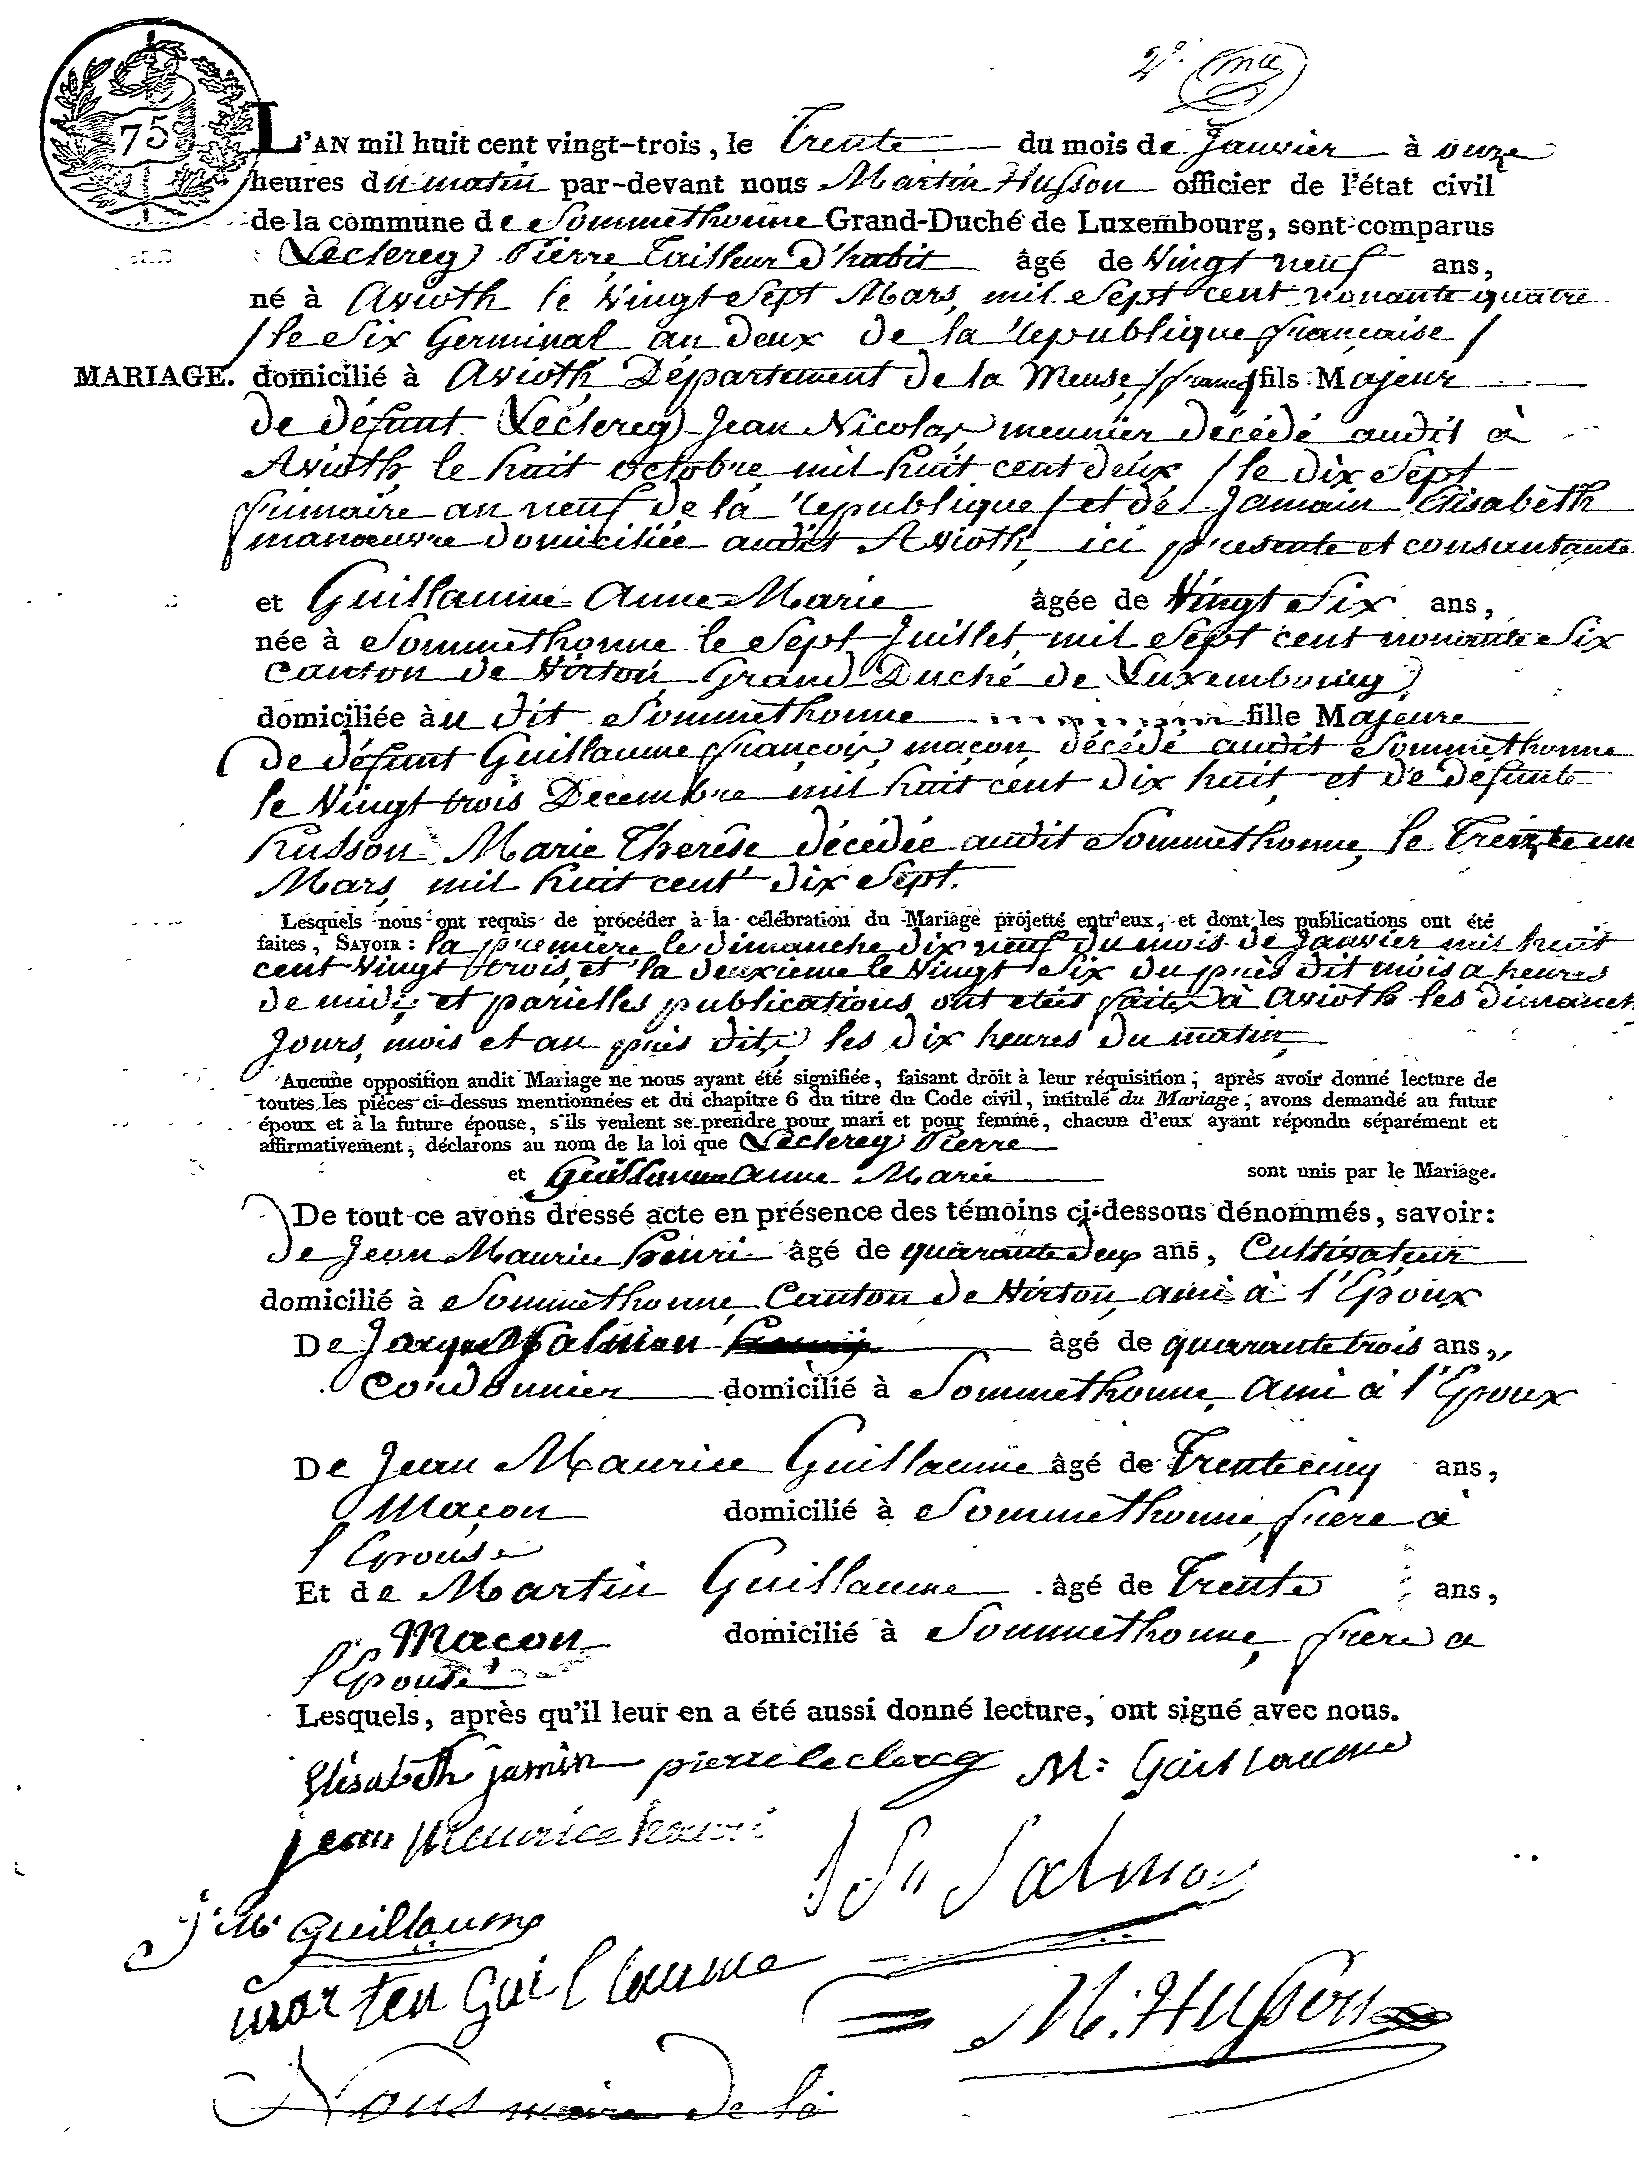 2e.
75
L'AN mil huit cent vingt-trois, le Trente du mois de Janvier à onze
heures du matin par-devant nous Martin Husson officier de l'état civil
de la commune de Sommethonne Grand-Duché de Luxembourg, sont comparus
Leclercq Pierre Tailleur d'habit âgé de Vingt neuf ans,
né à Avioth le Vingt Sept Mars, mil Sept cent nonante quatre
/ le Six Germinal an deux de la republique française /
MARIAGE. domicilié à Avioth, Département de la Meuse, /france/ fils Majeur
de défunt Leclercq Jean Nicolas, meunier décédé audit à
Avioth, le huit octobre mil huit cent deux / le dix Sept
frimaire an neuf de la republique / et de Jamain Elisabeth
manœuvre domiciliée audit Avioth, ici presente et consantante
et Guillaume Anne Marie âgée de Vingt Six ans,
née à Sommethonne le Sept Juillet, mil Sept cent nonante Six
canton de Virton, Grand Duché de Luxembourg,
domiciliée à u dit Sommethonne fille Majeure
de défunt Guillaume françois, maçon, décédé audit Sommethonne
le Vingt trois Decembre mil huit cent dix huit, et de defunte
husson Marie Therése décédée audit Sommethonne, le Trente un
Mars, mil huit cent dix Sept.
Lesquels nous ont requis de procéder à la célébration du Mariage projetté entr'eux, et dont les publications ont été
faites, SAVOIR : la premiere le dimanche dix neuf du mois de Janvier mil huit
cent Vingt trois, et la deuxieme le Vingt Six du près dit mois a heures
de midi, et parielles publications ont etés faites à Avioth les dimanch
Jours, mois et an près dits, les dix heures du matin,
Aucune opposition audit Mariage ne nous ayant été signifiée, faisant droit à leur réquisition ; après avoir donné lecture de
toutes les pièces ci-dessus mentionnées et du chapitre 6 du titre du Code civil, intitulé du Mariage ; avons demandé au futur
époux et à la future épouse, s'ils veulent se prendre pour mari et pour femme, chacun d'eux ayant répondu séparément et
affirmativement, déclarons au nom de la loi que Leclercq Pierre
et Guillaume Anne Marie sont unis par le Mariage.
De tout ce avons dressé acte en présence des témoins ci-dessous dénommés, savoir :
de Jean Maurice henri âgé de quarante deux ans, Cultivateur
domicilié à Sommethonne, Canton de Virton, ami à l'Epoux
De Jacques Salmon âgé de quarante trois ans,
Cordonnier domicilié à Sommethonne, ami à l'Epoux
De Jean Maurice Guillaume âgé de Trente cinq ans,
Maçon domicilié à Sommethonne, frere à
l'Epouse
Et de Martin Guillaume âgé de Trente ans,
Maçon domicilié à Sommethonne, frere a
l'Epouse
Lesquels, après qu'il leur en a été aussi donné lecture, ont signé avec nous.
Elisabeth jamin pierre leclercq M: Guillaume
jean Maurice henri
Salmon
J. M. Guillaume
marten Guillaume
M. Husson
Nous maire de la